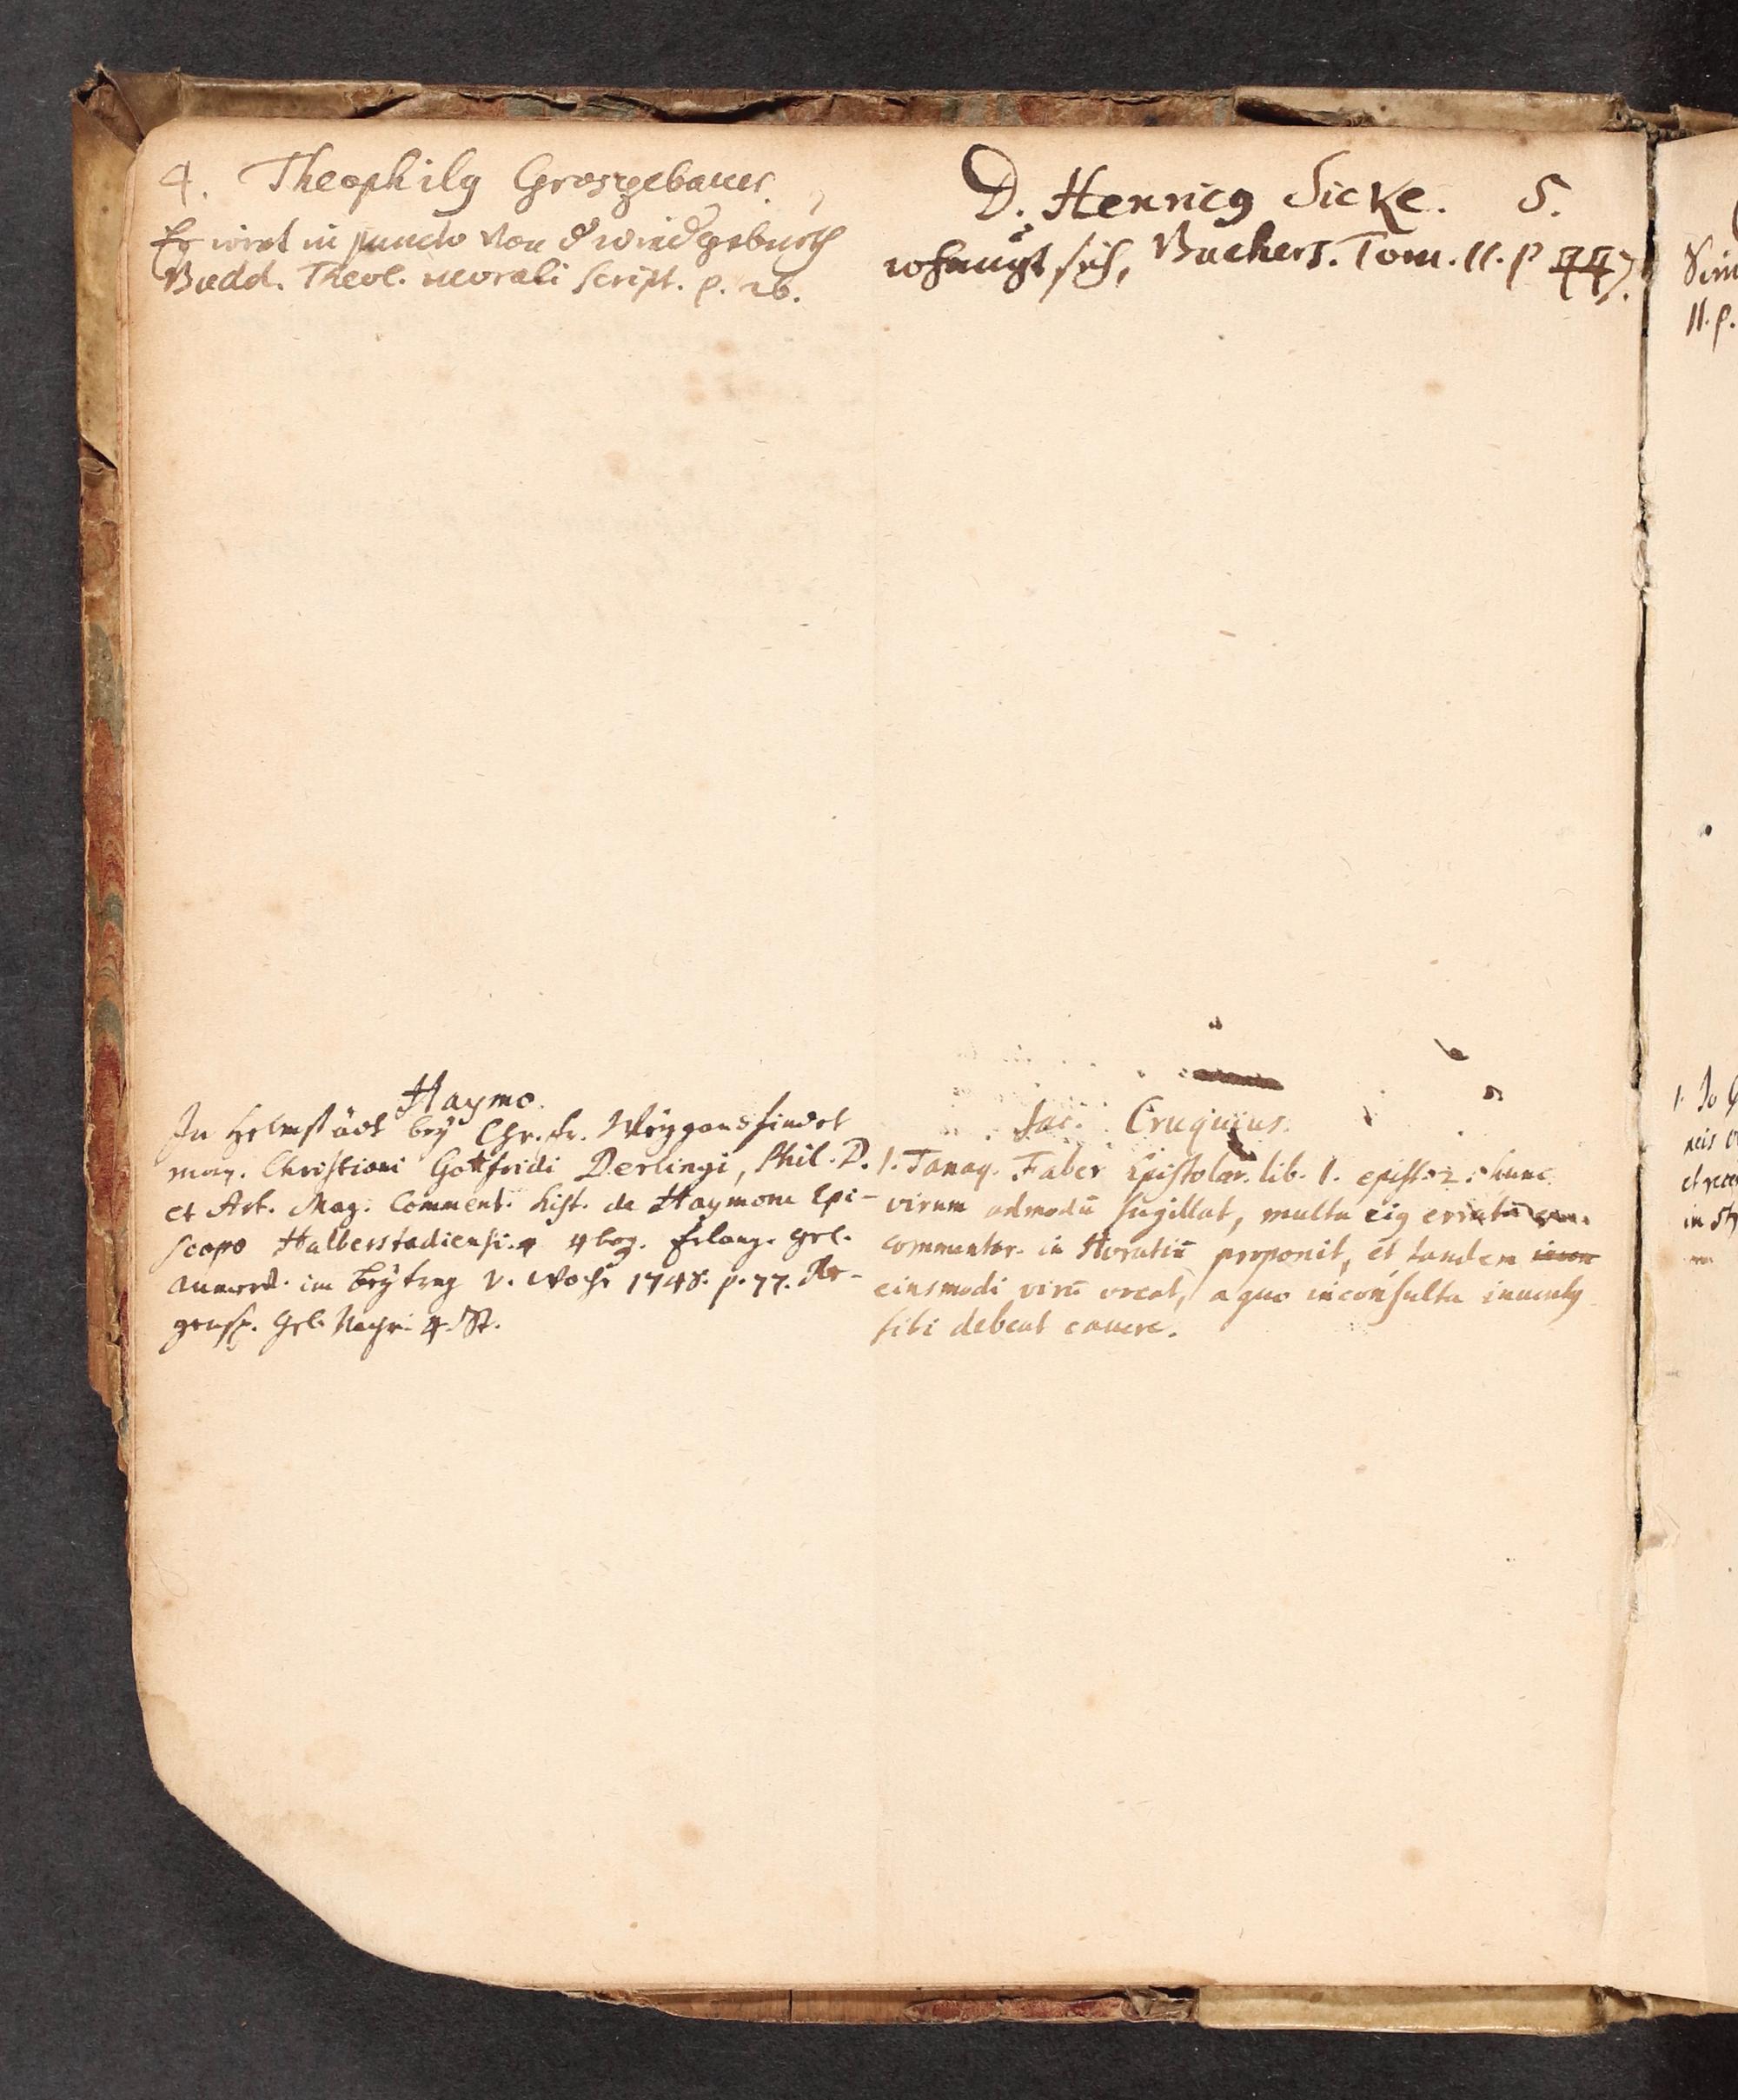 4. Theophilg Grosgebauer.
Er irret in puncto von d widgeburth
Budd. Theol. morali script. p. 26.
D. Henricg Sicke. 5.
erhängt sich, Buchers. Tom. II. p 447.
Haymo.
In Helmstädt bey Chr. fr. Weygand findet
man. Christiani Gottfridi Derlingi, Phil. D.
et Art. Mag. Comment. hist. de Haymone Epi-
scopo Halberstadiensi. 4 4 bog. Erlang. Gel.
Anmerk. im Beytrag V. Woche 1748. p. 77. Re-
gensp. Gel. Nachr. 4. St.
Jac. Cruquius.
1. Tanaq. Faber Epistolar. lib. 1. epist. 2. hunc
virum admodū sugillat, multa eig errata
commentar. in Horatiū proponit, et tandem
eiusmodi virū vocat, a quo inconsulta iuuentg
sibi debeat cauere.
Sim
II. p.
1. Jo
neis
et
in